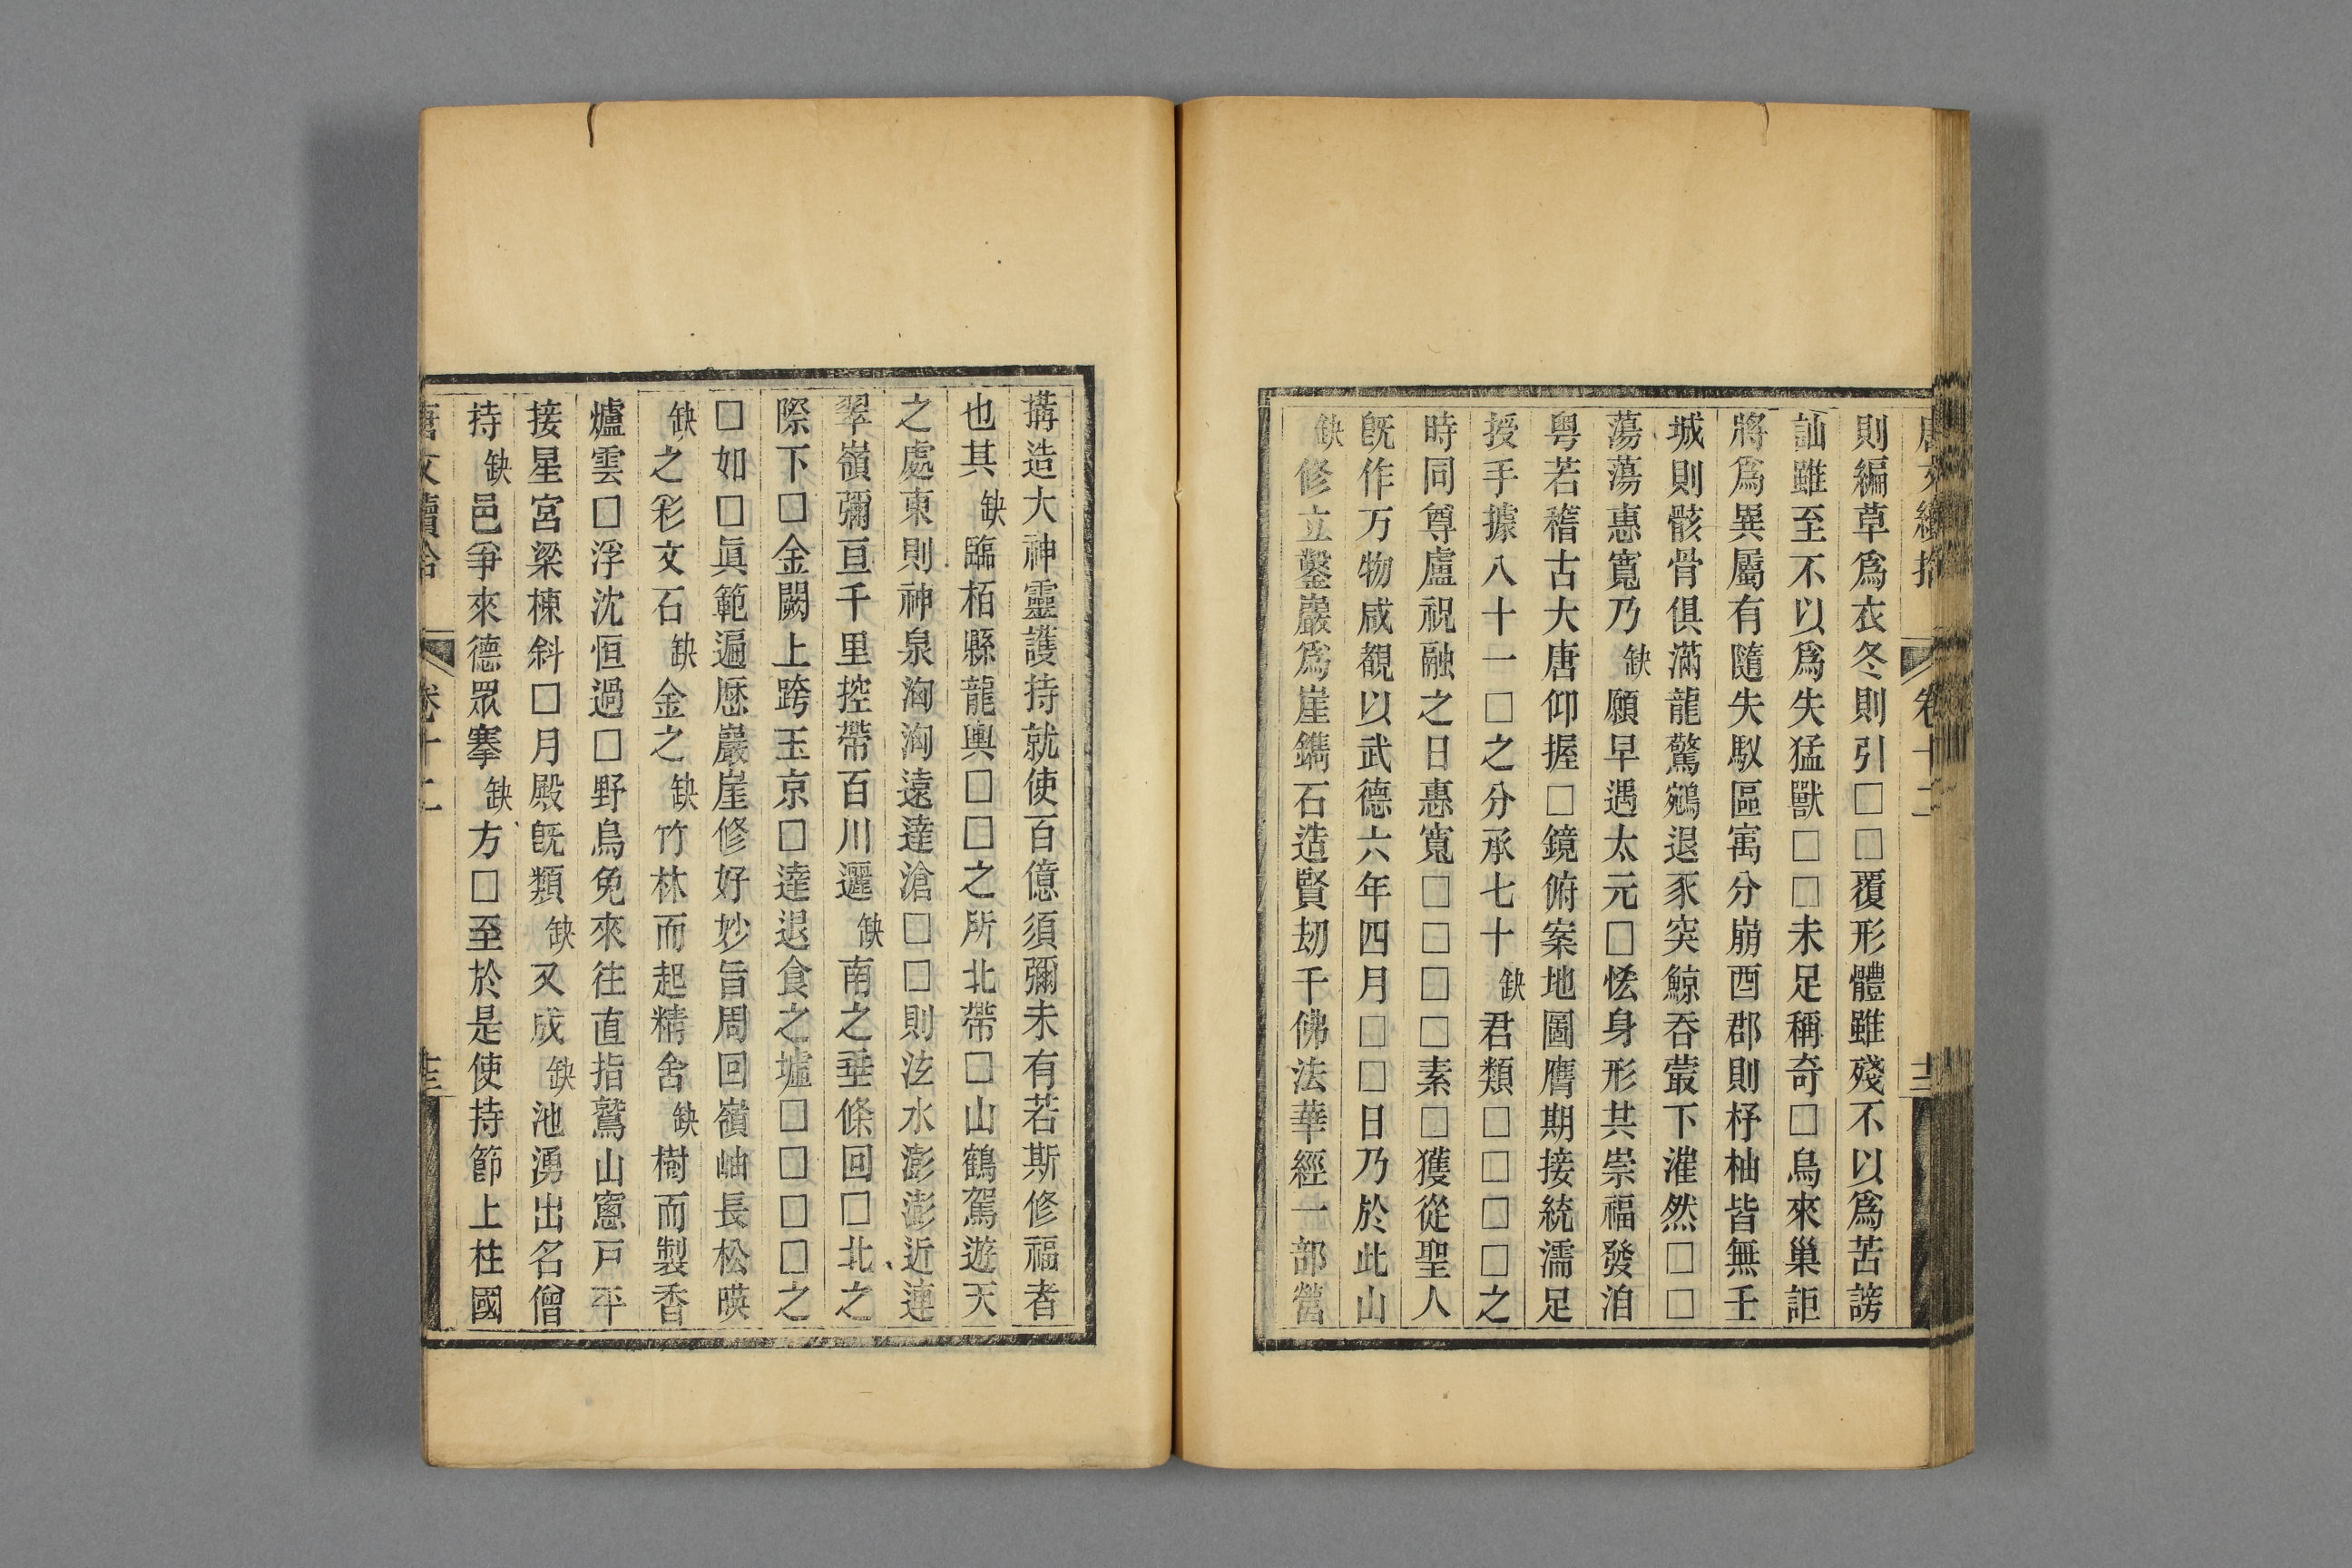 則編草爲衣冬則引□□覆形體雖殘不以爲苦謗
訕雖至不以爲失猛獸□□未足稱奇□鳥來巢詎
將爲異屬有隨失馭區寓分崩酉郡則杼柚皆無壬
城則骸骨俱滿龍驚鵷退豕突鯨吞蕞下灌然□□
蕩蕩惠寬乃缺願早遇太元□恡身形共崇福發洎
粤若稽古大唐仰握□鏡俯案地圖膺期接統濡足
授手據八十一□之分承七十缺君類□□□□之
時同尊盧祝融之日惠寬□□□□素□獲從聖人
旣作万物咸覩以武德六年四月□□日乃於此山
缺修立鑿巖爲崖鐫石造賢刼千佛法華經一部營
搆造大神靈護持就使百億須彌未有若斯修福者
也其缺臨栢縣龍輿□□之所北帶□山鶴駕遊天
之處東則神泉洶洶遠達滄□□則泫水澎澎近連
翠嶺彌亘千里控帶百川邐缺南之垂條回□北之
際下□金闕上跨玉京□達退食之墟□□□□之
□如□眞範遍歷巖崖修好妙旨周回嶺岫長松暎
缺之彩文石缺金之缺竹林而起精舍缺樹而製香
爐雲□浮沈恒過□野烏兔來往直指鷲山窻戸平
接星宮梁棟斜□月殿旣類缺又成缺池湧出名僧
持缺邑爭來德眾搴缺方□至於是使持節上柱國
唐文續拾 卷十二 十三